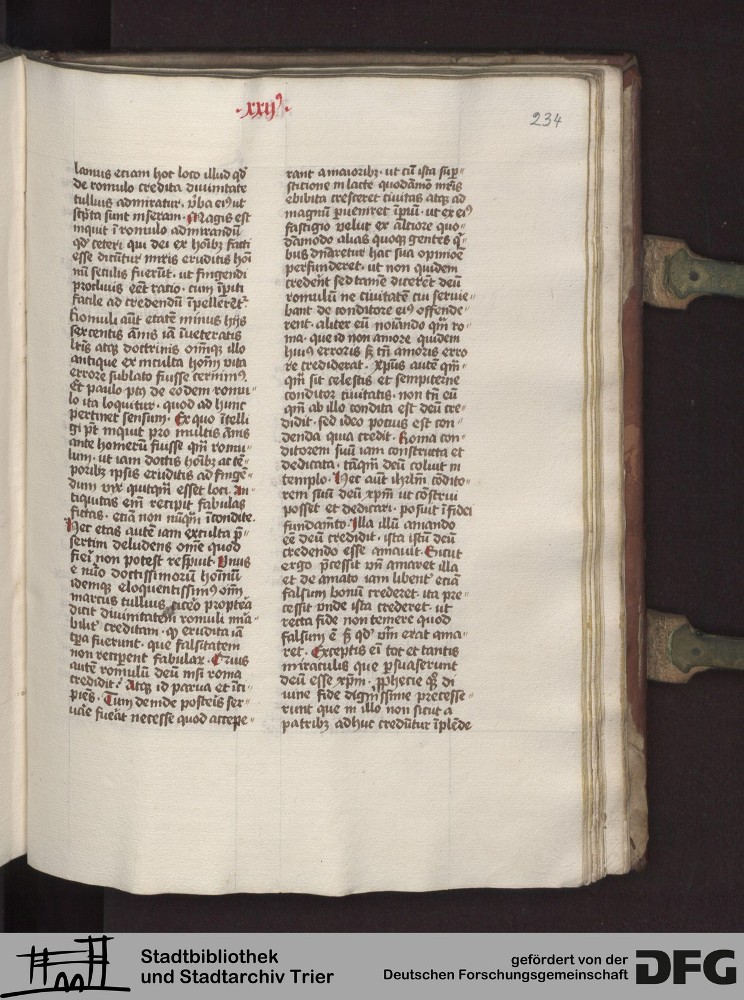 ·xxij·
234
lamus etiam hoc loco illud qđ
de romulo credita diuinitate
tullius admiratur· v̾ba ei9 ut
sc̾pta sunt inseram· Magis est
inquit ī romulo admirandū
qđ ceteri qui dei ex hoı̄bȝ facti
esse dicūtur mı̄ꝰis eruditis hoı̄
nū seculis fuerūt· ut fingendi
procliuis eēt ratio· cum īpiti
facile ad credendū īpellerēt᷑
Romuli aūt etatē minus hijs
sexcentis ānis iā īueteratis
lr̄is atqȝ doctrinis om̄iqȝ illo
antiquo ex inculta hom̄ vita
errore sublato fuisse cernim9·
Et paulo pꝰ de eodem romu
lo ita loquitur· quod ad hunc
pertinet sensum· Ex quo ītelli
gi pt̄ inquit pro multis ānis
ante homerū fuisse qm̄ romu
lum· ut iam doctis hoı̄bȝ ac tē
poribȝ ipsis eruditis ad finge
dum vix quicqm̄ esset loci· An
tiquitas em̄ recipit fabulas
fictas· etiā non nūqm̄ īcondite·
Hec etas autē iam exculta p̄
sertim deludens om̄e quod
fieri non potest respuit· Vnus
e nūo doctissimorū hoı̄nū
idemqȝ eloquentissim9 om̄
marcus tullius cicero propterea
dicit diuinitatem romuli mira
bilit᷑ creditam· qꝫ erudita iā
tp̄a fuerunt· que falsitatem
non reciperent fabularꝝ· Quis
autē romulū deū nisi roma
credidit· Atqȝ id parua et īci
piēs· Tum deinde posteris ser
uare fuerat necesse quod accepe
rant a maioribȝ· ut cū ista sup̱
sticione in lacte quodāmō mr̄is
ebibita cresceret ciuitas atqȝ ad
magnū pueniret īpiū· ut ex ei9
fastigio velut ex alciore quo
dāmodo alias quoqȝ gentes q̄
bus dn̄aretur hac sua opinioē
perfunderet· ut non quidem
crederēt sed tamē dicerēt deū
romulū ne ciuitatē cui seruie
bant de conditore ei9 offende
rent· aliter eū noı̄ando qm̄ ro
ma· que id non amore quidem
hui9 erroris sꝫ tn̄ amoris erro
re crediderat· xp̄us autē qm̄
qm̄ sit celestis et sempiterne
conditor ciuitatis· non tn̄ eū
qm̄ ab illo condita est deū cre
didit· sed ideo potius est con
denda quia credit· Roma con
ditorem suū iam constructa et
dedicata· tāqm̄ deū coluit in
templo· Hec aūt ihrl̄m condito
rem suū deū xp̄m ut cōstrui
posset et dedicari· posuit ī fidei
fundam̄to· Illa illū amando
eē deū credidit· ista istū deū
credendo esse amauit· Sicut
ergo p̄cessit vn̄ amaret illa
et de amato iam libent᷑ etiā
falsum bonū crederet· ita pre
cessit vnde ista crederet· ut
recta fide non temere quod
falsum ē sꝫ qđ vm̄ erat ama
ret· Exceptis ei tot et tantis
miraculis que psuaserunt
deū esse xp̄m· pphecie qȝ di
uine fide dignissime precesse
runt que in illo non sicut a
patribȝ adhuc credūtur īplēde
Stadtbibliothek
und Stadtarchiv Trier
gefördert von der
Deutschen Forschungsgemeinschaft
DFG